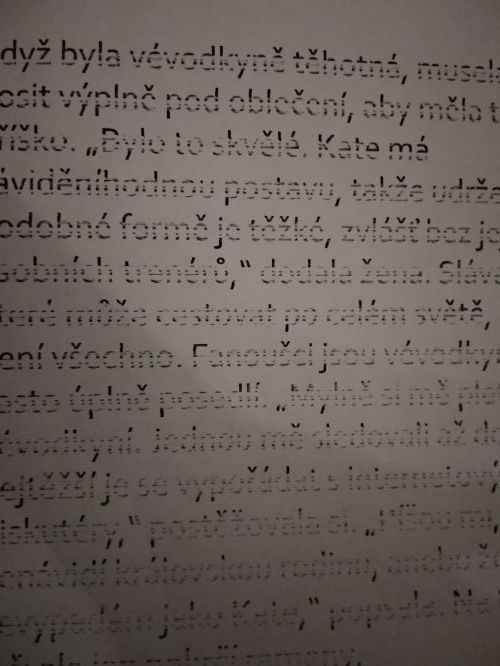 dyž byla vévodkyně těhotná, musela
osit výplně pod oblečení, aby měla t
říško. „Bylo to skvělé. Kate má
áviděníhodnou postavu, takže udrže
odobné formě je těžké, zvlášť bez jej
sobních trenérů,“ dodala žena. Sláva
teré může cestovat po celém světě,
ení všechno. Fanoušci jsou vévodkyn
asto úplně posedlí. „Mylně si mě plet
évodkyní. Jednou mě sledovali až do
ejtěžší je se vypořádat s internetový
iskutéry,“ postěžovala si. „Píšou mi,
enávidí královskou rodinu, anebo že
evypadám jako Kate,“ popsala. Na